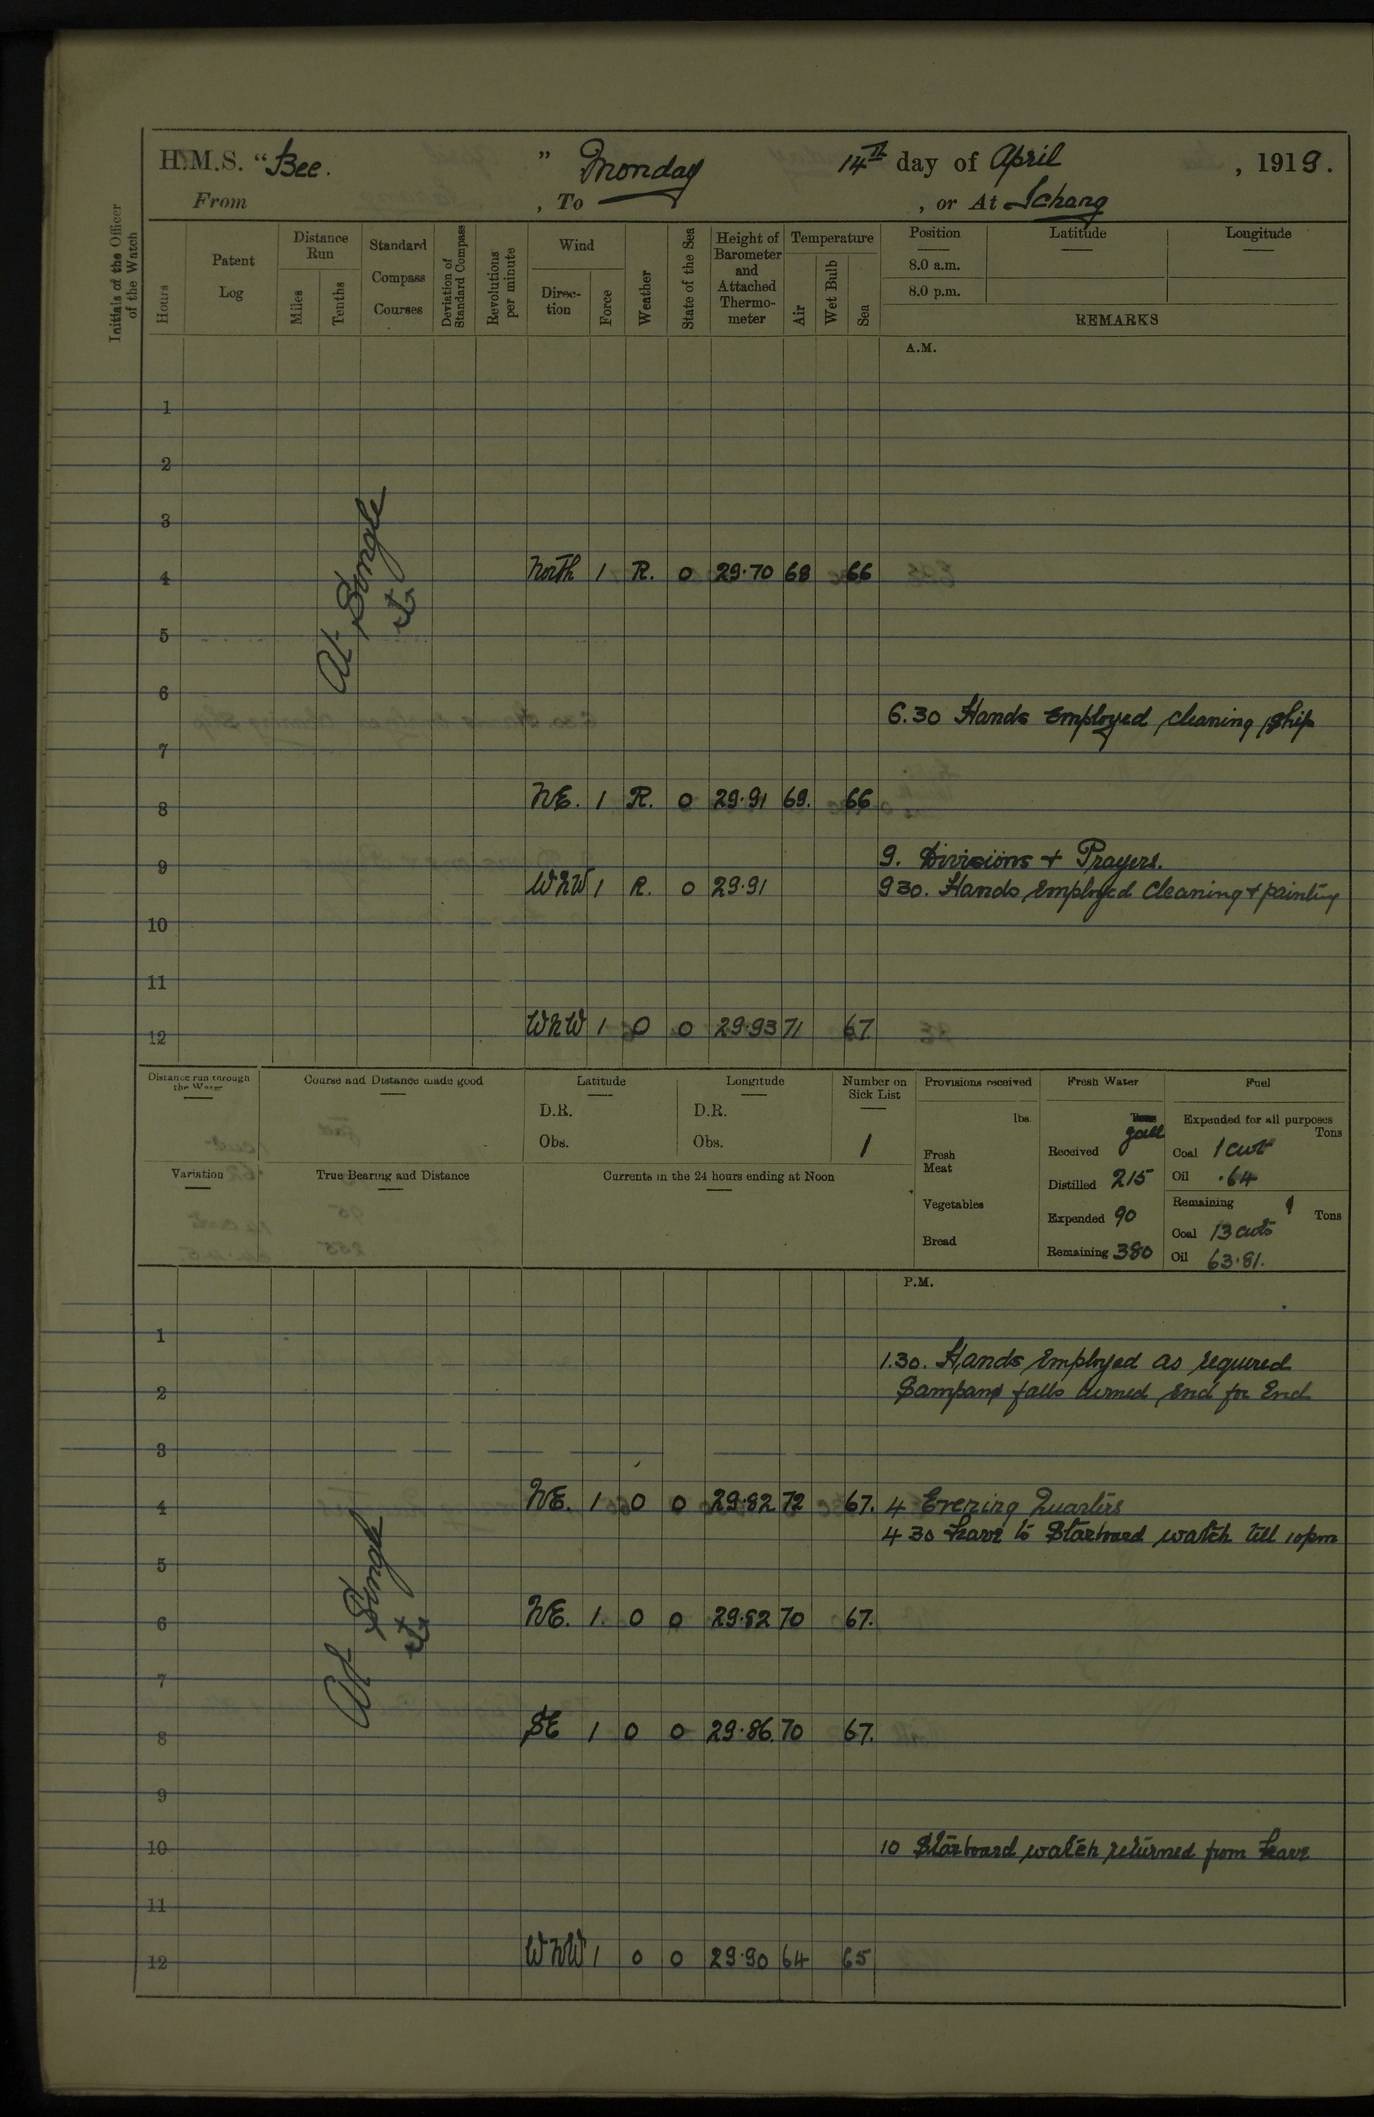 H.M.S. "Bee. " Monday 14th day of April, 1919.
From , To , or At Ichang
Initials of the Officer of the Watch
Hours
Patent Log
Distance Run
Miles
Tenths
Standard Compass Courses
Deviation of Standard Compass
Revolutions per minute
Wind
Direc-tion
Force
Weather
State of the Sea
Height of Barometer and Attached Thermo-meter
Temperature
Air
Wet Bulb
Sea
Position
8.0 a.m.
8.0 p.m.
Latitude
Longitude
REMARKS
A.M.
1
2
3
At Single ⚓
4 North 1 R. 0 29.70 68 66
5
6
6.30 Hands employed cleaning ship
7
8 NE. 1 R. 0 29.91 69. 66
9 9. Divisions + Prayers.
WNW 1 R. 0 29.91 930. Hands employed cleaning + painting
10
11
12 WNW 1 0 0 29.93 71 67.
Distance run through the Water
Course and Distance made good
Latitude
D.R.
Obs.
Longitude
D.R.
Obs.
Number on Sick List
1
Provisions received
lbs.
Fresh Meat
Vegetables
Bread
Fresh Water
Tons
gall
Received
Distilled 215
Expended 90
Remaining 380
Fuel
Expended for all purposes
Tons
Coal 1 cwt
Oil .64
Remaining
Tons
Coal 13 cwts
Oil 63.81.
Variation
True Bearing and Distance
Currents in the 24 hours ending at Noon
P.M.
1
1.30. Hands employed as required
2 Sampans falls turned end for End
3
4 NE. 1 0 0 29.82 72 67. 4 Evening Quarters
4 30 Leave to Starboard watch till 10pm
5
At Single ⚓
6 NE. 1. 0 0 29.82 70 67.
7
8 SE 1 0 0 29.86. 70 67.
9
10 10 Starboard watch returned from leave
11
12 WNW 1 0 0 29.90 64 65